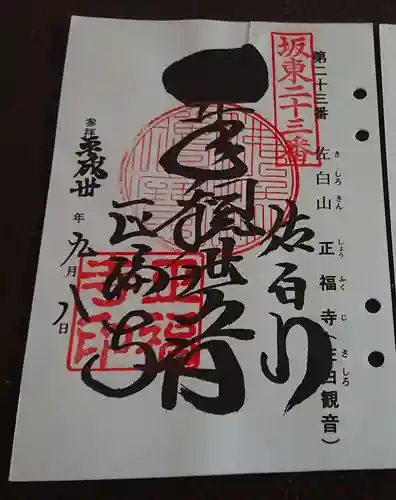 坂東二十三番
第二十三番 佐白山 正福寺(佐白観音)
さ しろ さん しょう ふく じ さ しろ
佐白山
千手観世音
正福寺
正福寺印
参拝 平成卅年九月八日